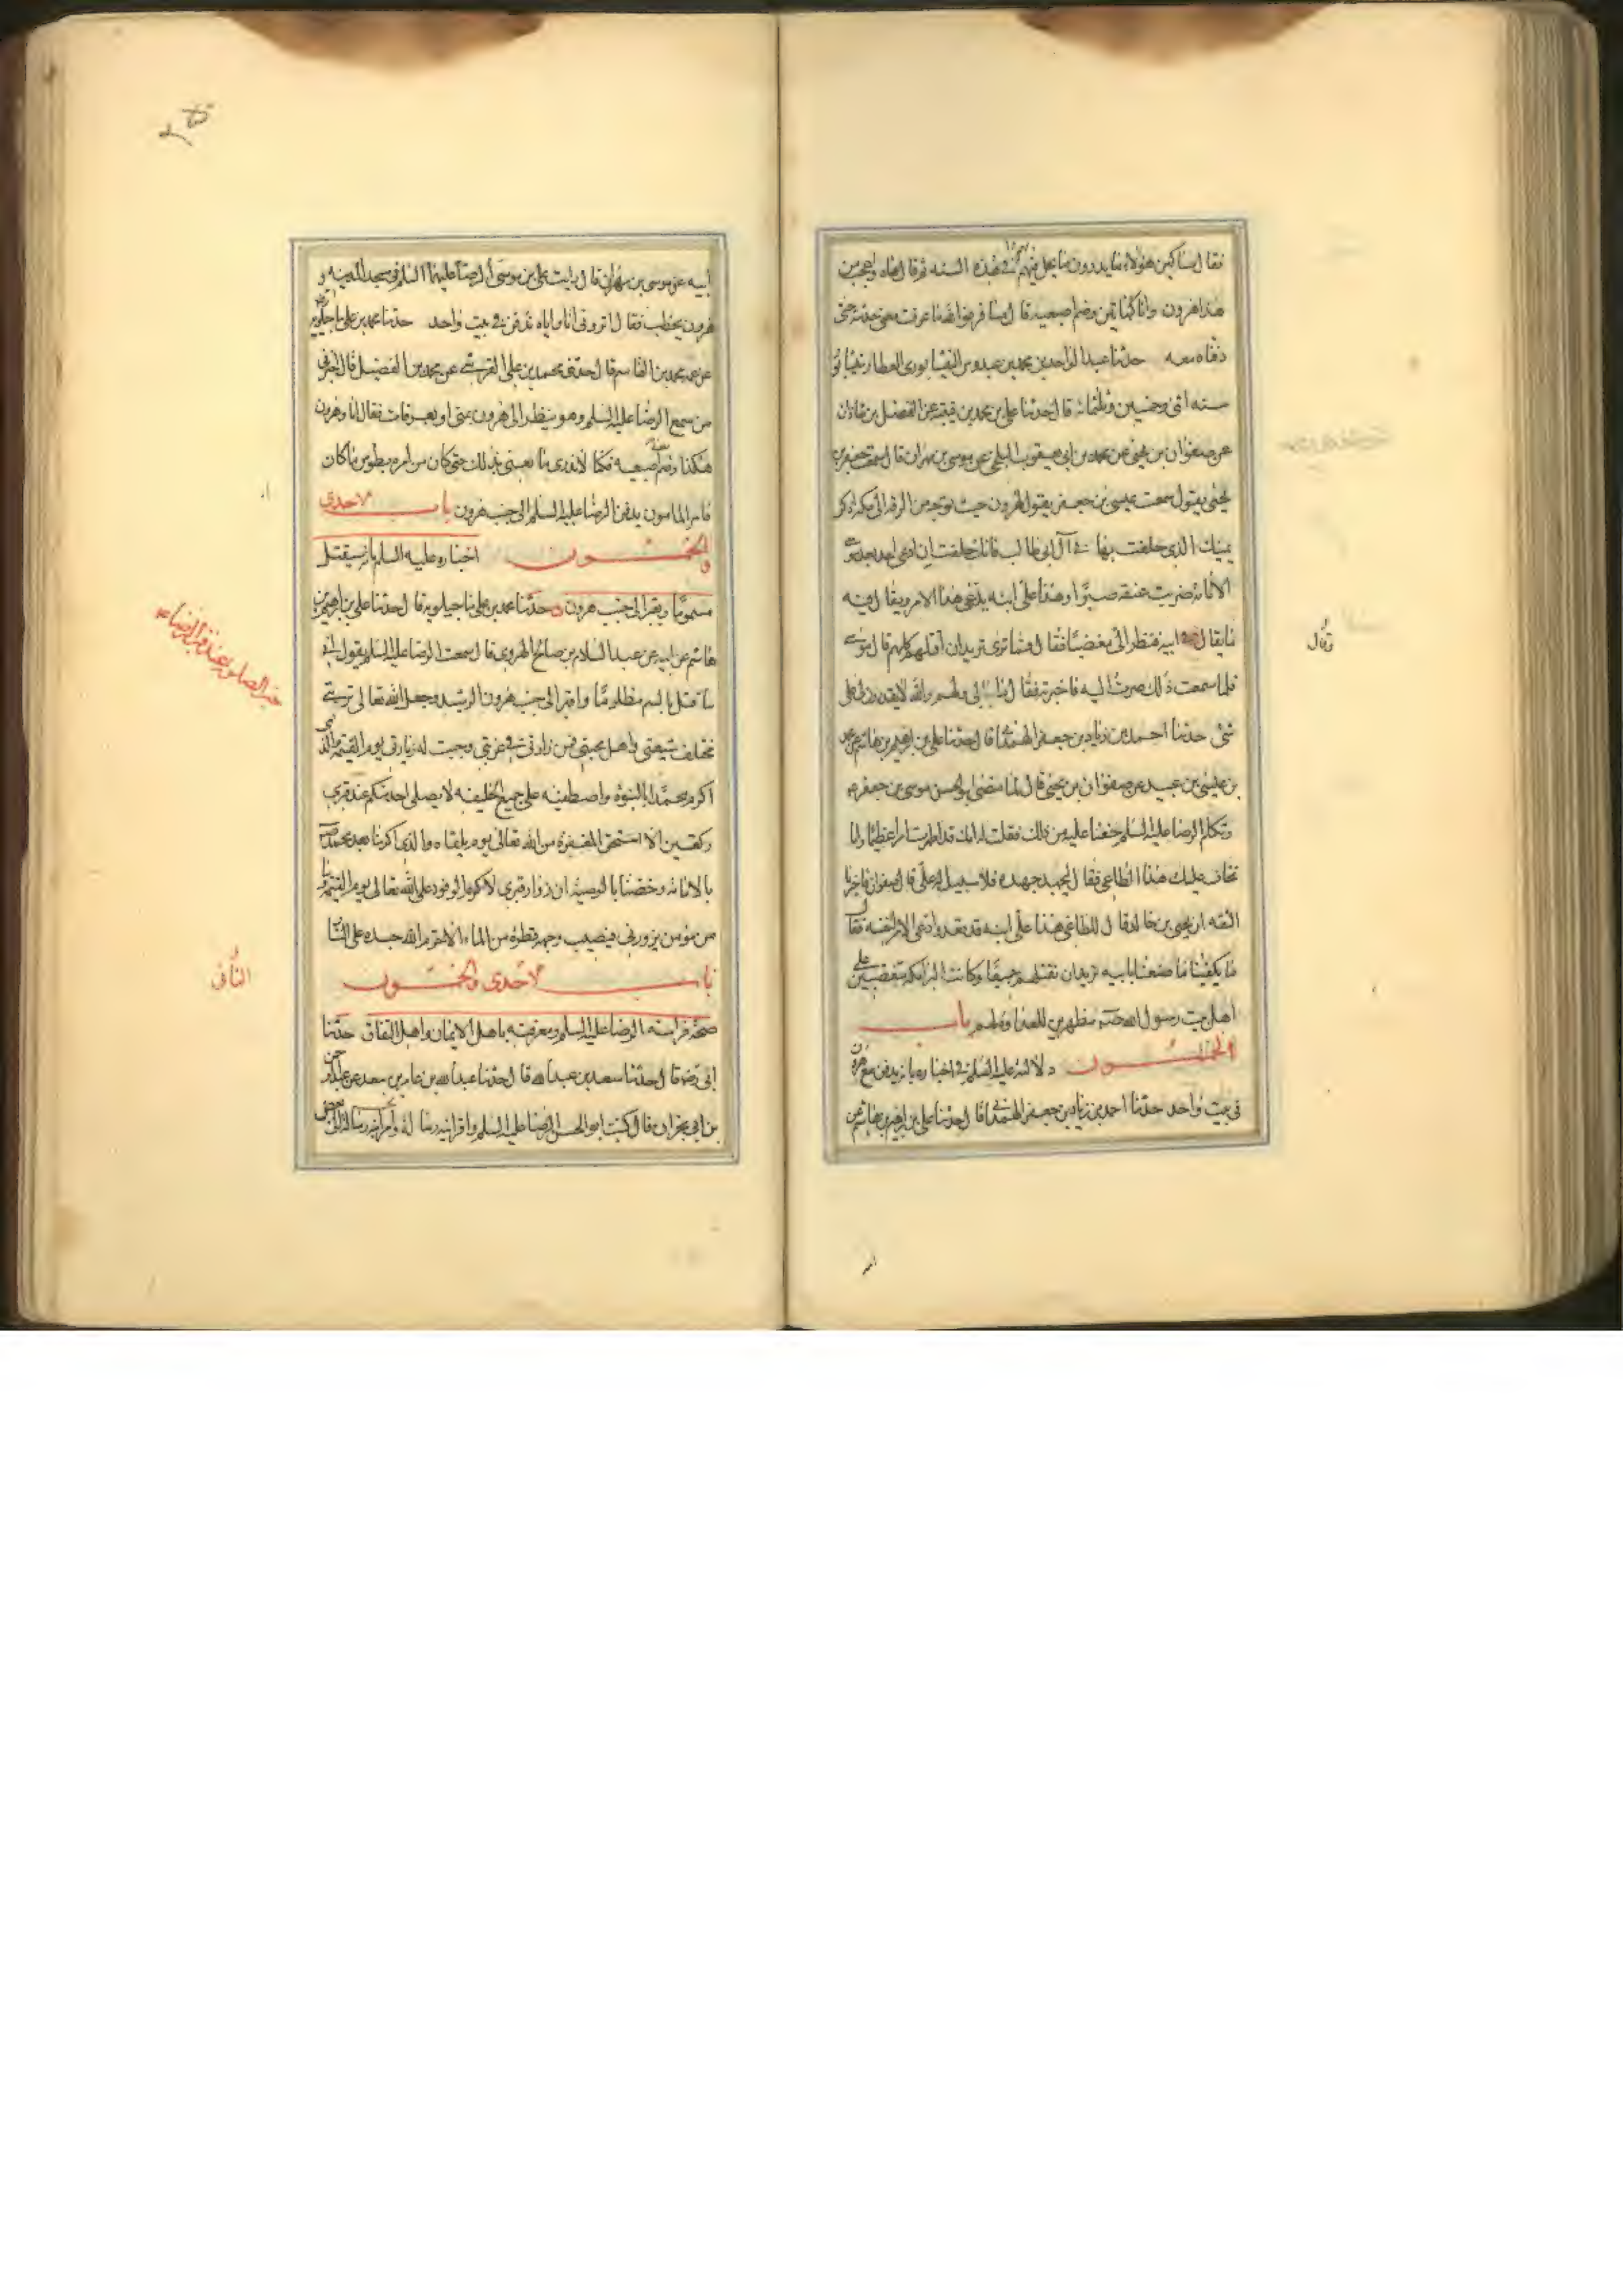 فقال مساكين هؤلاء ما يدرون ما يحل بهم في هذه السنة ثم قال هاه واعجب من
هذا هرون وانا كهاتين وضم اصبعيه قال مسافر فوالله ما عرفت معنى حديثه حتى
دفناه معه حدثنا عبد الواحد بن محمد بن عبدوس النيشابوري العطار بنيشابور
سنة اثني وخمسين وثلثمائة قال حدثنا علي بن محمد بن قتيبة عن الفضل بن شاذان
عن صفوان بن يحيى عن محمد بن ابي يعقوب البلخي عن موسى بن مهران قال سمعت جعفر بن
يحيى يقول سمعت عيسى بن جعفر يقول لهرون حيث توجه من الرقة الى مكة اذكر
يمينك الذي حلفت بها في آل ابي طالب فانك حلفت ان ادعى احد بعد موسى
الامامة ضربت عنقه صبرا وهذا علي ابنه يدعي هذا الامر ويقال فيه
ما يقال في ابيه فنظر الي مغضبا فقال وما ترى تريد ان اقتلهم كلهم قال موسى
فلما سمعت ذلك صرت اليه فاخبرته فقال مالي ولهم والله لا يقدرون الي على
شئ حدثنا احمد بن زياد بن جعفر الهمداني قال حدثنا علي بن ابرهيم بن هاشم عن محمد
بن عيسى بن عبيد عن صفوان بن يحيى قال لما مضى ابو الحسن موسى بن جعفر ع
وتكلم الرضا عليه السلم خفنا عليه من ذلك فقلت له انك قد اظهرت امرا عظيما وانا
نخاف عليك هذا الطاغي فقال ليجهد جهده فلا سبيل له علي قال صفوان فاخبرنا
الثقة ان يحيى بن خالد قال للطاغي هذا علي ابنه قد قعد وادعى الامر لنفسه فقال
ما يكفينا ما صنعنا بابيه تريد ان نقتلهم جميعا وكانت البرامكة مبغضين على
اهل بيت رسول الله مظهرين للعداوة لهم باب
الخمسون دلالته عليه السلم في اخباره بانه يدفن مع هرون
في بيت واحد حدثنا احمد بن زياد بن جعفر الهمداني قال حدثنا علي بن ابرهيم بن هاشم عن
ابيه عن موسى بن مهران قال رايت علي بن موسى الرضا عليهما السلم في مسجد المدينة و
هرون يخطب فقال اتروني انا واياه ندفن في بيت واحد حدثنا محمد بن علي ماجيلويه
عن عمه محمد بن القاسم قال حدثني محمد بن علي القرشي عن محمد بن الفضيل قال اخبرني
من سمع الرضا عليه السلم وهو ينظر الى هرون بمنى او بعرفات فقال انا وهرون
هكذا وضم اصبعيه فكنا لا ندري ما يعني بذلك حتى كان من امره بطوس ما كان
فامر المامون بدفن الرضا عليه السلم الى جنب هرون باب الاحدى
والخمسون اخباره عليه السلم بانه سيقتل
مسموما ويقبر الى جنب هرون حدثنا محمد بن علي ماجيلويه قال حدثنا علي بن ابرهيم بن
هاشم عن ابيه عن عبد السلام بن صالح الهروي قال سمعت الرضا عليه السلم يقول اني
ساقتل بالسم مظلوما واقبر الى جنب هرون الرشيد وجعل الله تعالى تربتي
مختلف شيعتي واهل محبتي فمن زارني في غربتي وجبت له زيارتي يوم القيمة والذي
اكرم محمدا بالنبوة واصطفيه على جميع الخليقة لا يصلي احد منكم عند قبري
ركعتين الا استحق المغفرة من الله تعالى يوم يلقاه والذي اكرمنا بعد محمد
بالامامة وخصنا بالوصية ان زوار قبري لاكرم الوفود على الله تعالى يوم القيمة وما
من مؤمن يزورني فيصيب وجهه قطرة من الماء الا حرم الله جسده على النار
باب الاحدى والخمسون
صحة فراسة الرضا عليه السلم ومعرفته باهل الايمان واهل النفاق حدثنا
ابي رض قال حدثنا سعد بن عبد الله قال حدثنا عبد الله بن عامر بن سعد عن عبد الرحمن
بن ابي نجران قال كتب ابو الحسن الرضا عليه السلم واقرانيه رسالة الى بعض